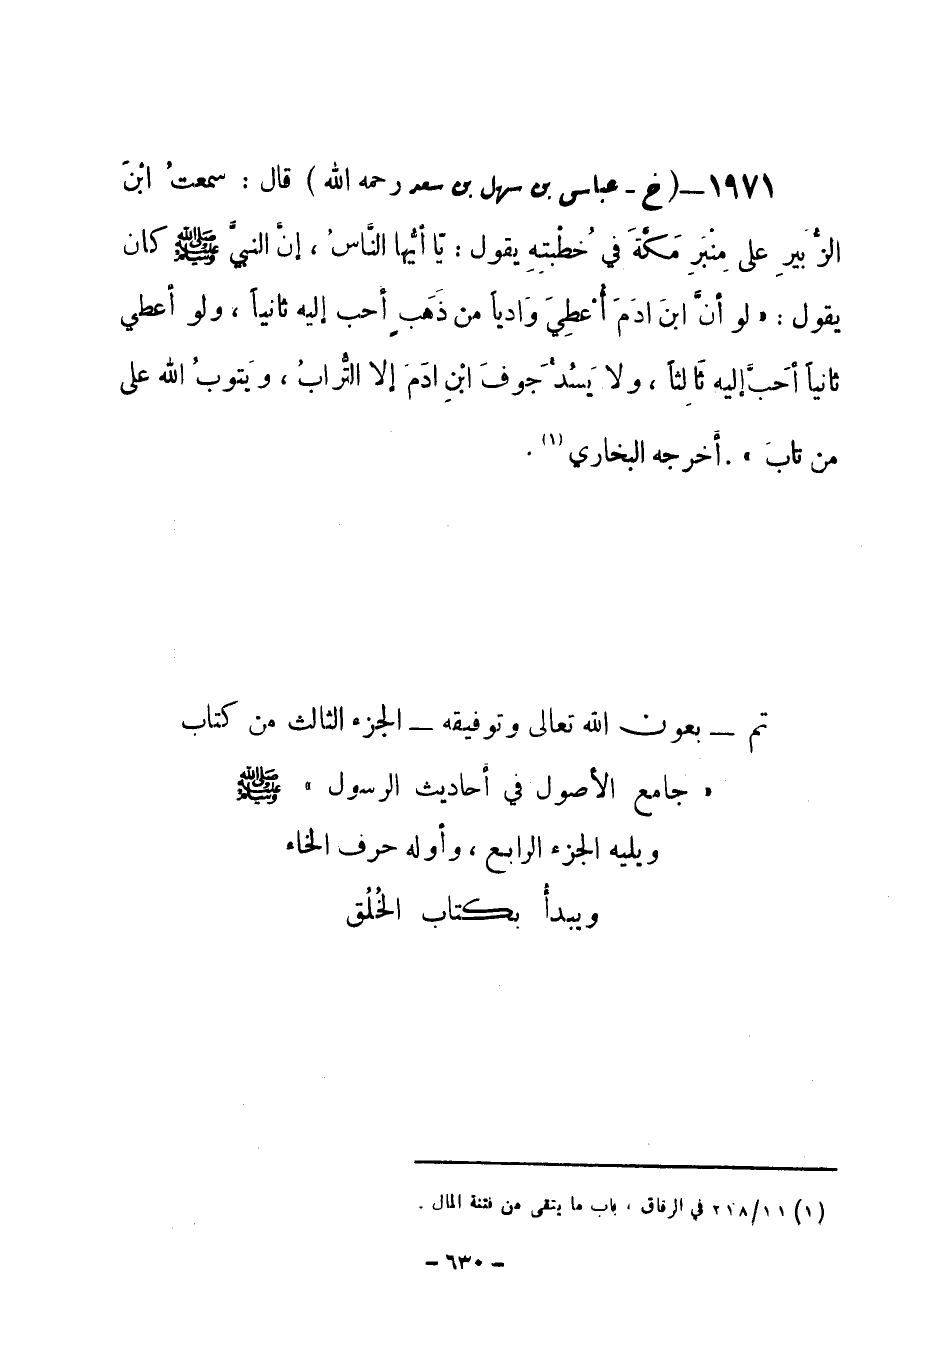 ١٩٧١ – ( خ - عباس بن سهل بن سعد رحمه الله ) قال : سمعتُ ابْنَ
الزُّبَيرِ على مِنْبَرِ مَكَّةَ في خُطْبتِهِ يقول : يَا أيُّها النَّاسُ ، إنَّ النبيَّ ﷺ كان
يقول : « لو أنَّ ابنَ ادَمَ أُعْطِيَ وَادياً من ذَهَبٍ أحب إليه ثانياً ، ولو أعطي
ثانياً أحَبَّ إليه ثَالِثاً ، ولا يَسُدُّ جَوفَ ابْنِ ادَمَ إلا التُّرابُ ، ويَتوبُ الله على
من تابَ » . أخرجه البخاري (١) .
تم – بعون الله تعالى وتوفيقه – الجزء الثالث من كتاب
« جامع الأصول في أحاديث الرسول » ﷺ
ويليه الجزء الرابع ، وأوله حرف الخاء
ويبدأ بكتاب الخُلُق
(١) ٢١٨/١١ في الرقاق ، باب ما يتقى من فتنة المال .
- ٦٣٠ -